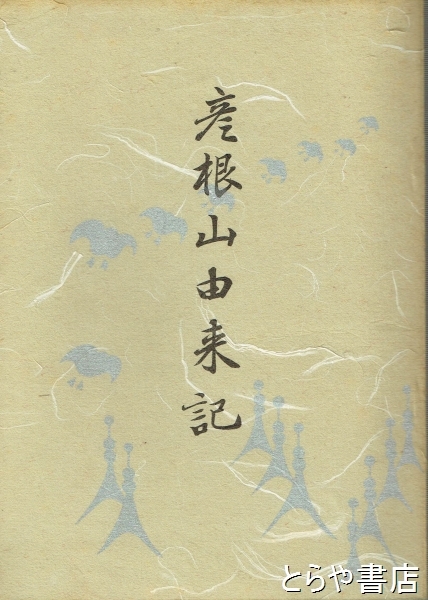 彦根山由来記
とらや書店